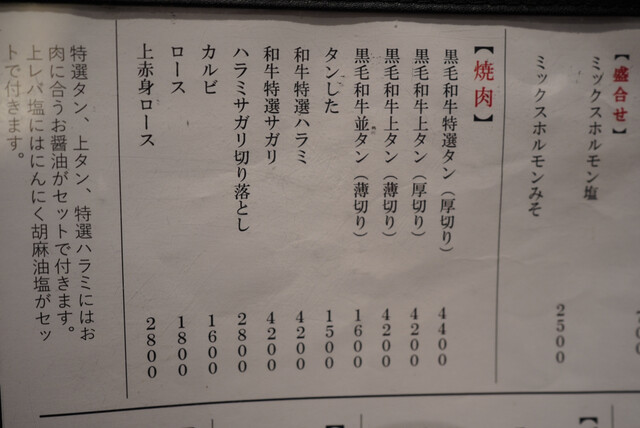 【盛合せ】
ミックスホルモン塩
ミックスホルモンみそ 2500
【焼肉】
黒毛和牛特選タン（厚切り） 4400
黒毛和牛上タン（厚切り） 4200
黒毛和牛上タン（薄切り） 4200
黒毛和牛並タン（薄切り） 1600
タンした 1500
和牛特選ハラミ 4200
和牛特選サガリ 4200
ハラミサガリ切り落とし 2800
カルビ 1600
ロース 1800
上赤身ロース 2800
特選タン、上タン、特選ハラミにはお
肉に合うお醤油がセットで付きます。
上レバ塩にはにんにく胡麻油塩がセッ
トで付きます。